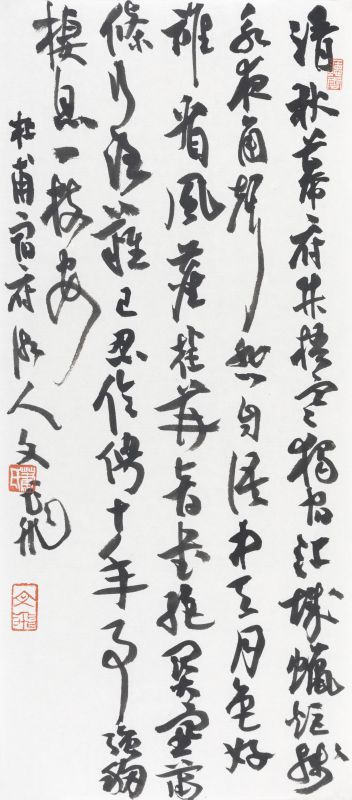 清秋幕府井梧寒獨宿江城蠟炬殘
永夜角聲悲自語中天月色好
誰看風塵荏苒音書絕關塞蕭
條行路難已忍伶俜十年事強移
棲息一枝安
杜甫宿府人文